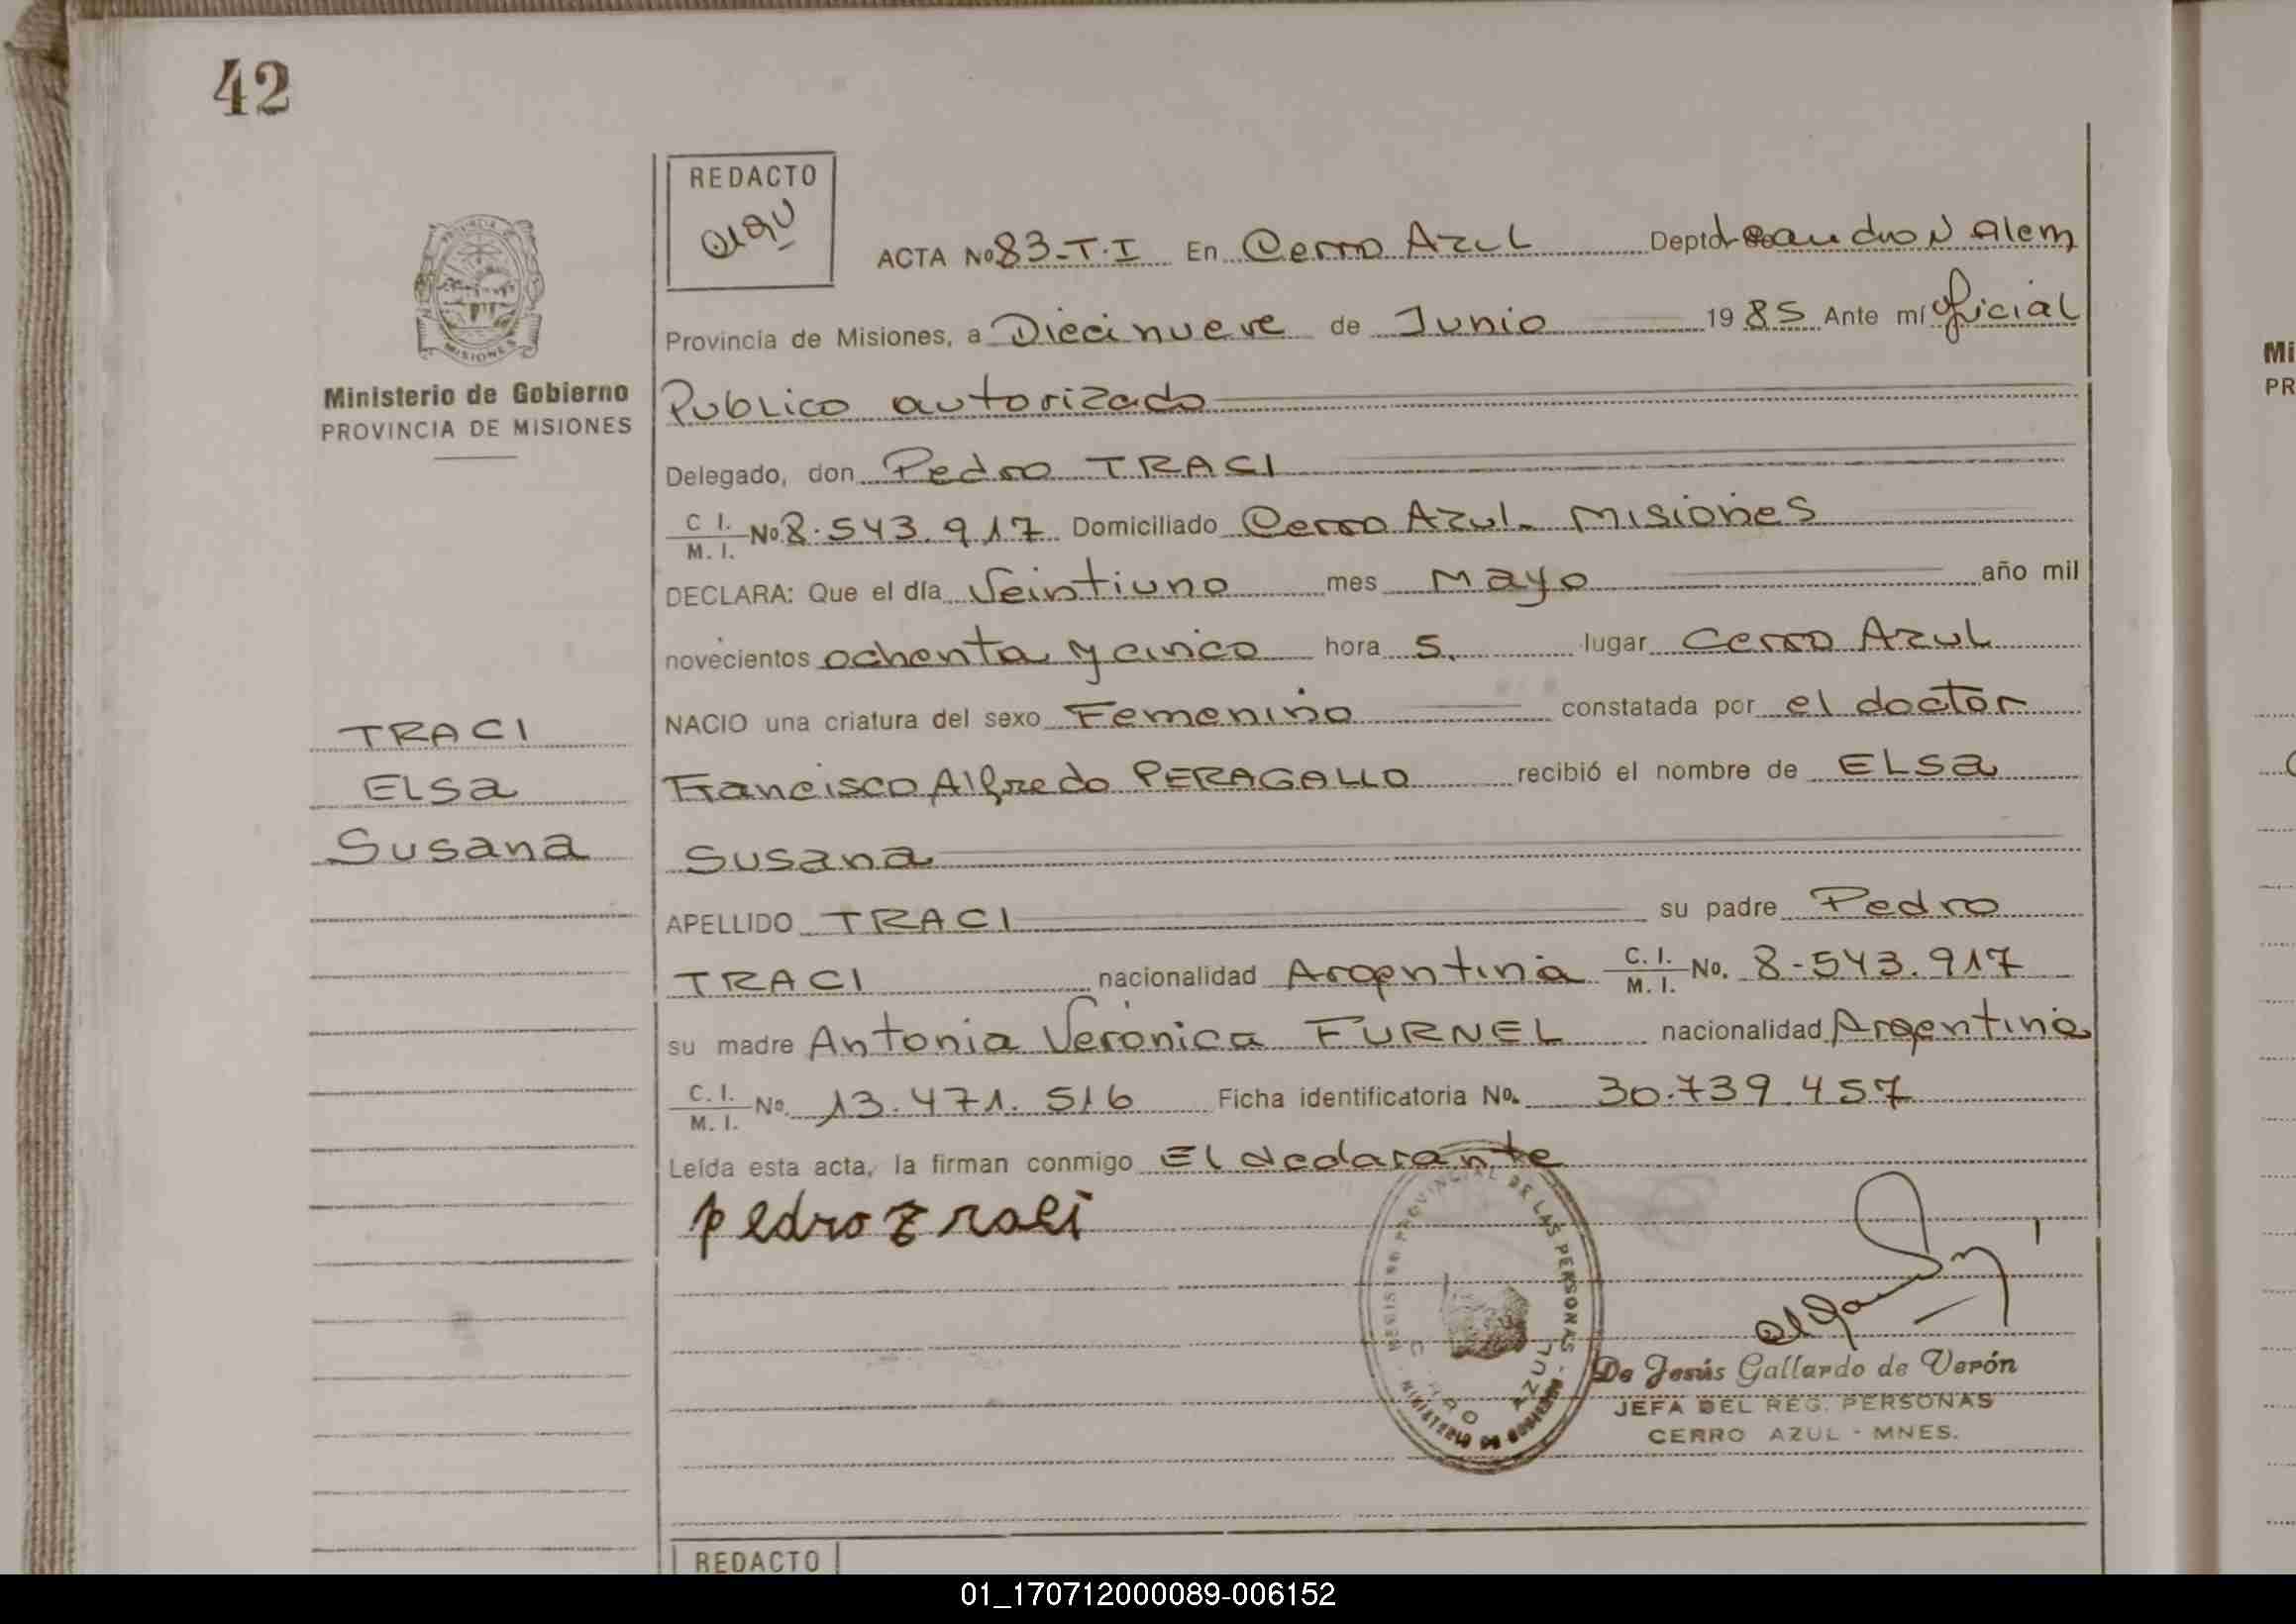 42
REDACTO
ACTA No 83-T.I En Cerro Azul Depto Leandro N Alem
Provincia de Misiones, a Diecinueve de Junio 1985 Ante mí oficial
Publico autorizado
Delegado, don Pedro TRACI
C I.
M. I. No 8.543.917 Domiciliado Cerro Azul. Misiones
DECLARA: Que el día Veintiuno mes Mayo año mil
novecientos ochenta y cinco hora 5. lugar Cerro Azul
NACIO una criatura del sexo Femenino constatada por el doctor
Francisco Alfredo PERAGALLO recibió el nombre de ELSa
Susana
APELLIDO TRACI su padre Pedro
TRACI nacionalidad Argentina C. I.
M. I. No. 8-543.917
su madre Antonia Veronica FURNEL nacionalidad Argentina
C. I.
M. I. No. 13.471.516 Ficha identificatoria No. 30.739.457
Leída esta acta, la firman conmigo El declarante
pedro traci
MISIONES
Ministerio de Gobierno
PROVINCIA DE MISIONES
TRACI
ELSa
Susana
REGISTRO PROVINCIAL DE LAS PERSONAS - MINISTERIO DE GOBIERNO
AZUL
De Jesús Gallardo de Verón
JEFA DEL REG. PERSONAS
CERRO AZUL - MNES.
REDACTO
Mi
PR
01_170712000089-006152